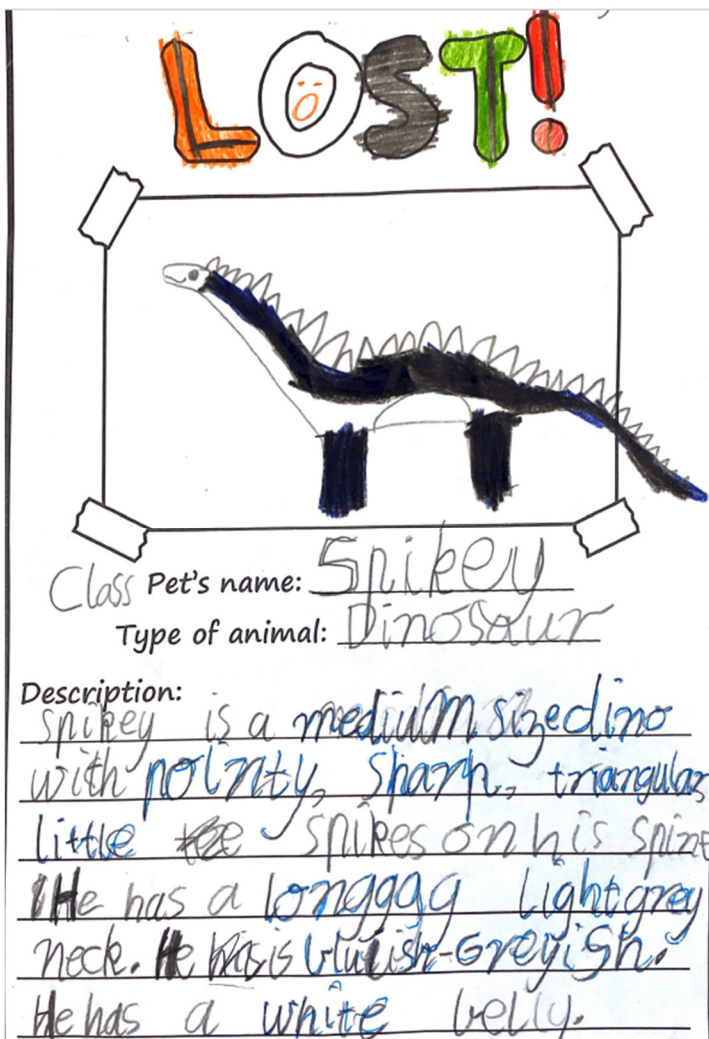 LOST!
Class Pet's name: Spikey
Type of animal: Dinosaur
Description:
Spikey is a medium sized dino
with pointy, sharp, triangular
little spikes on his spine
He has a longggg light grey
neck. He is bluish-Greyish.
He has a white belly.